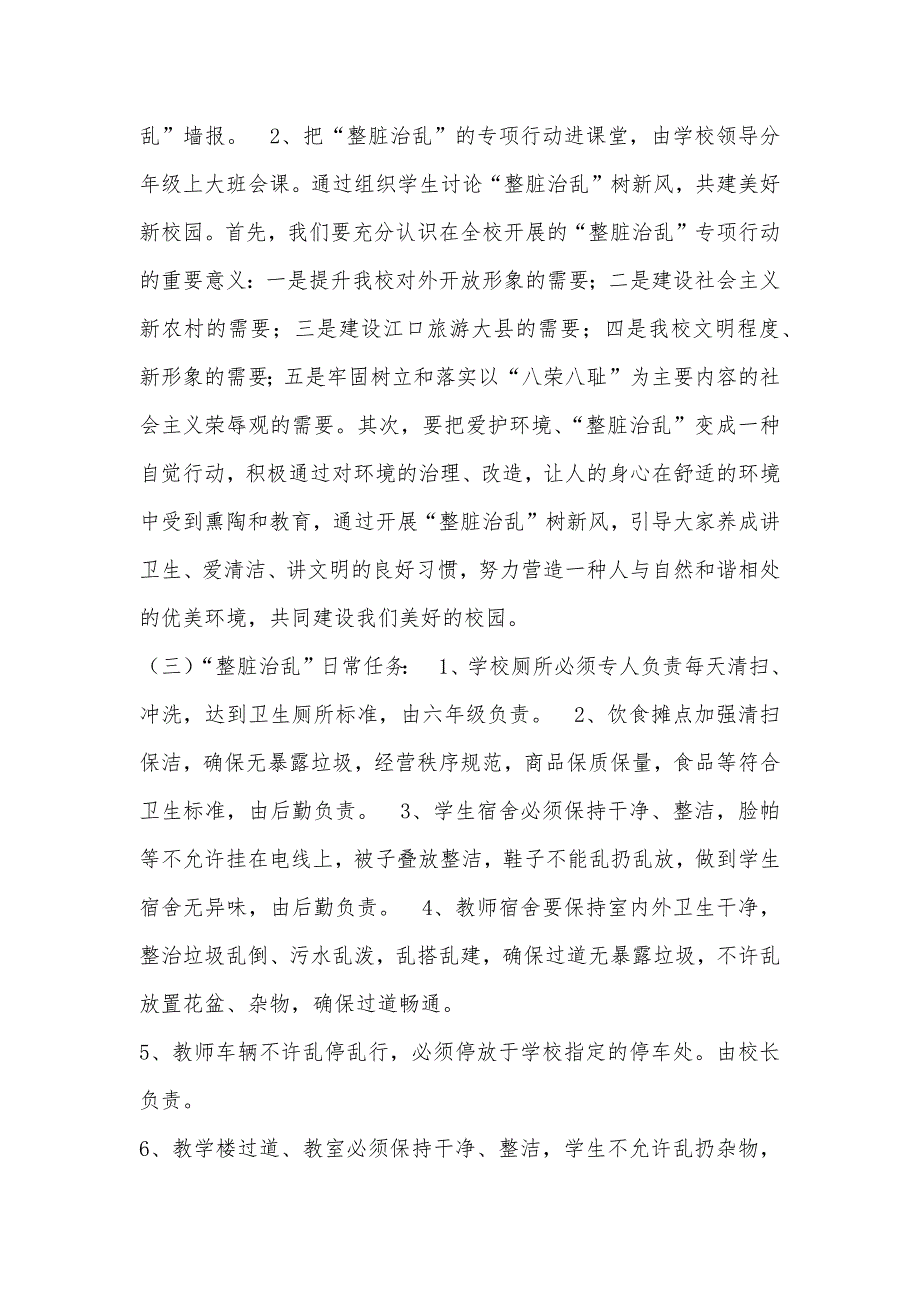 乱”墙报。  2、把“整脏治乱”的专项行动进课堂，由学校领导分
年级上大班会课。通过组织学生讨论“整脏治乱”树新风，共建美好
新校园。首先，我们要充分认识在全校开展的“整脏治乱”专项行动
的重要意义：一是提升我校对外开放形象的需要；二是建设社会主义
新农村的需要；三是建设江口旅游大县的需要；四是我校文明程度、
新形象的需要；五是牢固树立和落实以“八荣八耻”为主要内容的社
会主义荣辱观的需要。其次，要把爱护环境、“整脏治乱”变成一种
自觉行动，积极通过对环境的治理、改造，让人的身心在舒适的环境
中受到熏陶和教育，通过开展“整脏治乱”树新风，引导大家养成讲
卫生、爱清洁、讲文明的良好习惯，努力营造一种人与自然和谐相处
的优美环境，共同建设我们美好的校园。
（三）“整脏治乱”日常任务：  1、学校厕所必须专人负责每天清扫、
冲洗，达到卫生厕所标准，由六年级负责。  2、饮食摊点加强清扫
保洁，确保无暴露垃圾，经营秩序规范，商品保质保量，食品等符合
卫生标准，由后勤负责。  3、学生宿舍必须保持干净、整洁，脸帕
等不允许挂在电线上，被子叠放整洁，鞋子不能乱扔乱放，做到学生
宿舍无异味，由后勤负责。  4、教师宿舍要保持室内外卫生干净，
整治垃圾乱倒、污水乱泼，乱搭乱建，确保过道无暴露垃圾，不许乱
放置花盆、杂物，确保过道畅通。
5、教师车辆不许乱停乱行，必须停放于学校指定的停车处。由校长
负责。
6、教学楼过道、教室必须保持干净、整洁，学生不允许乱扔杂物，